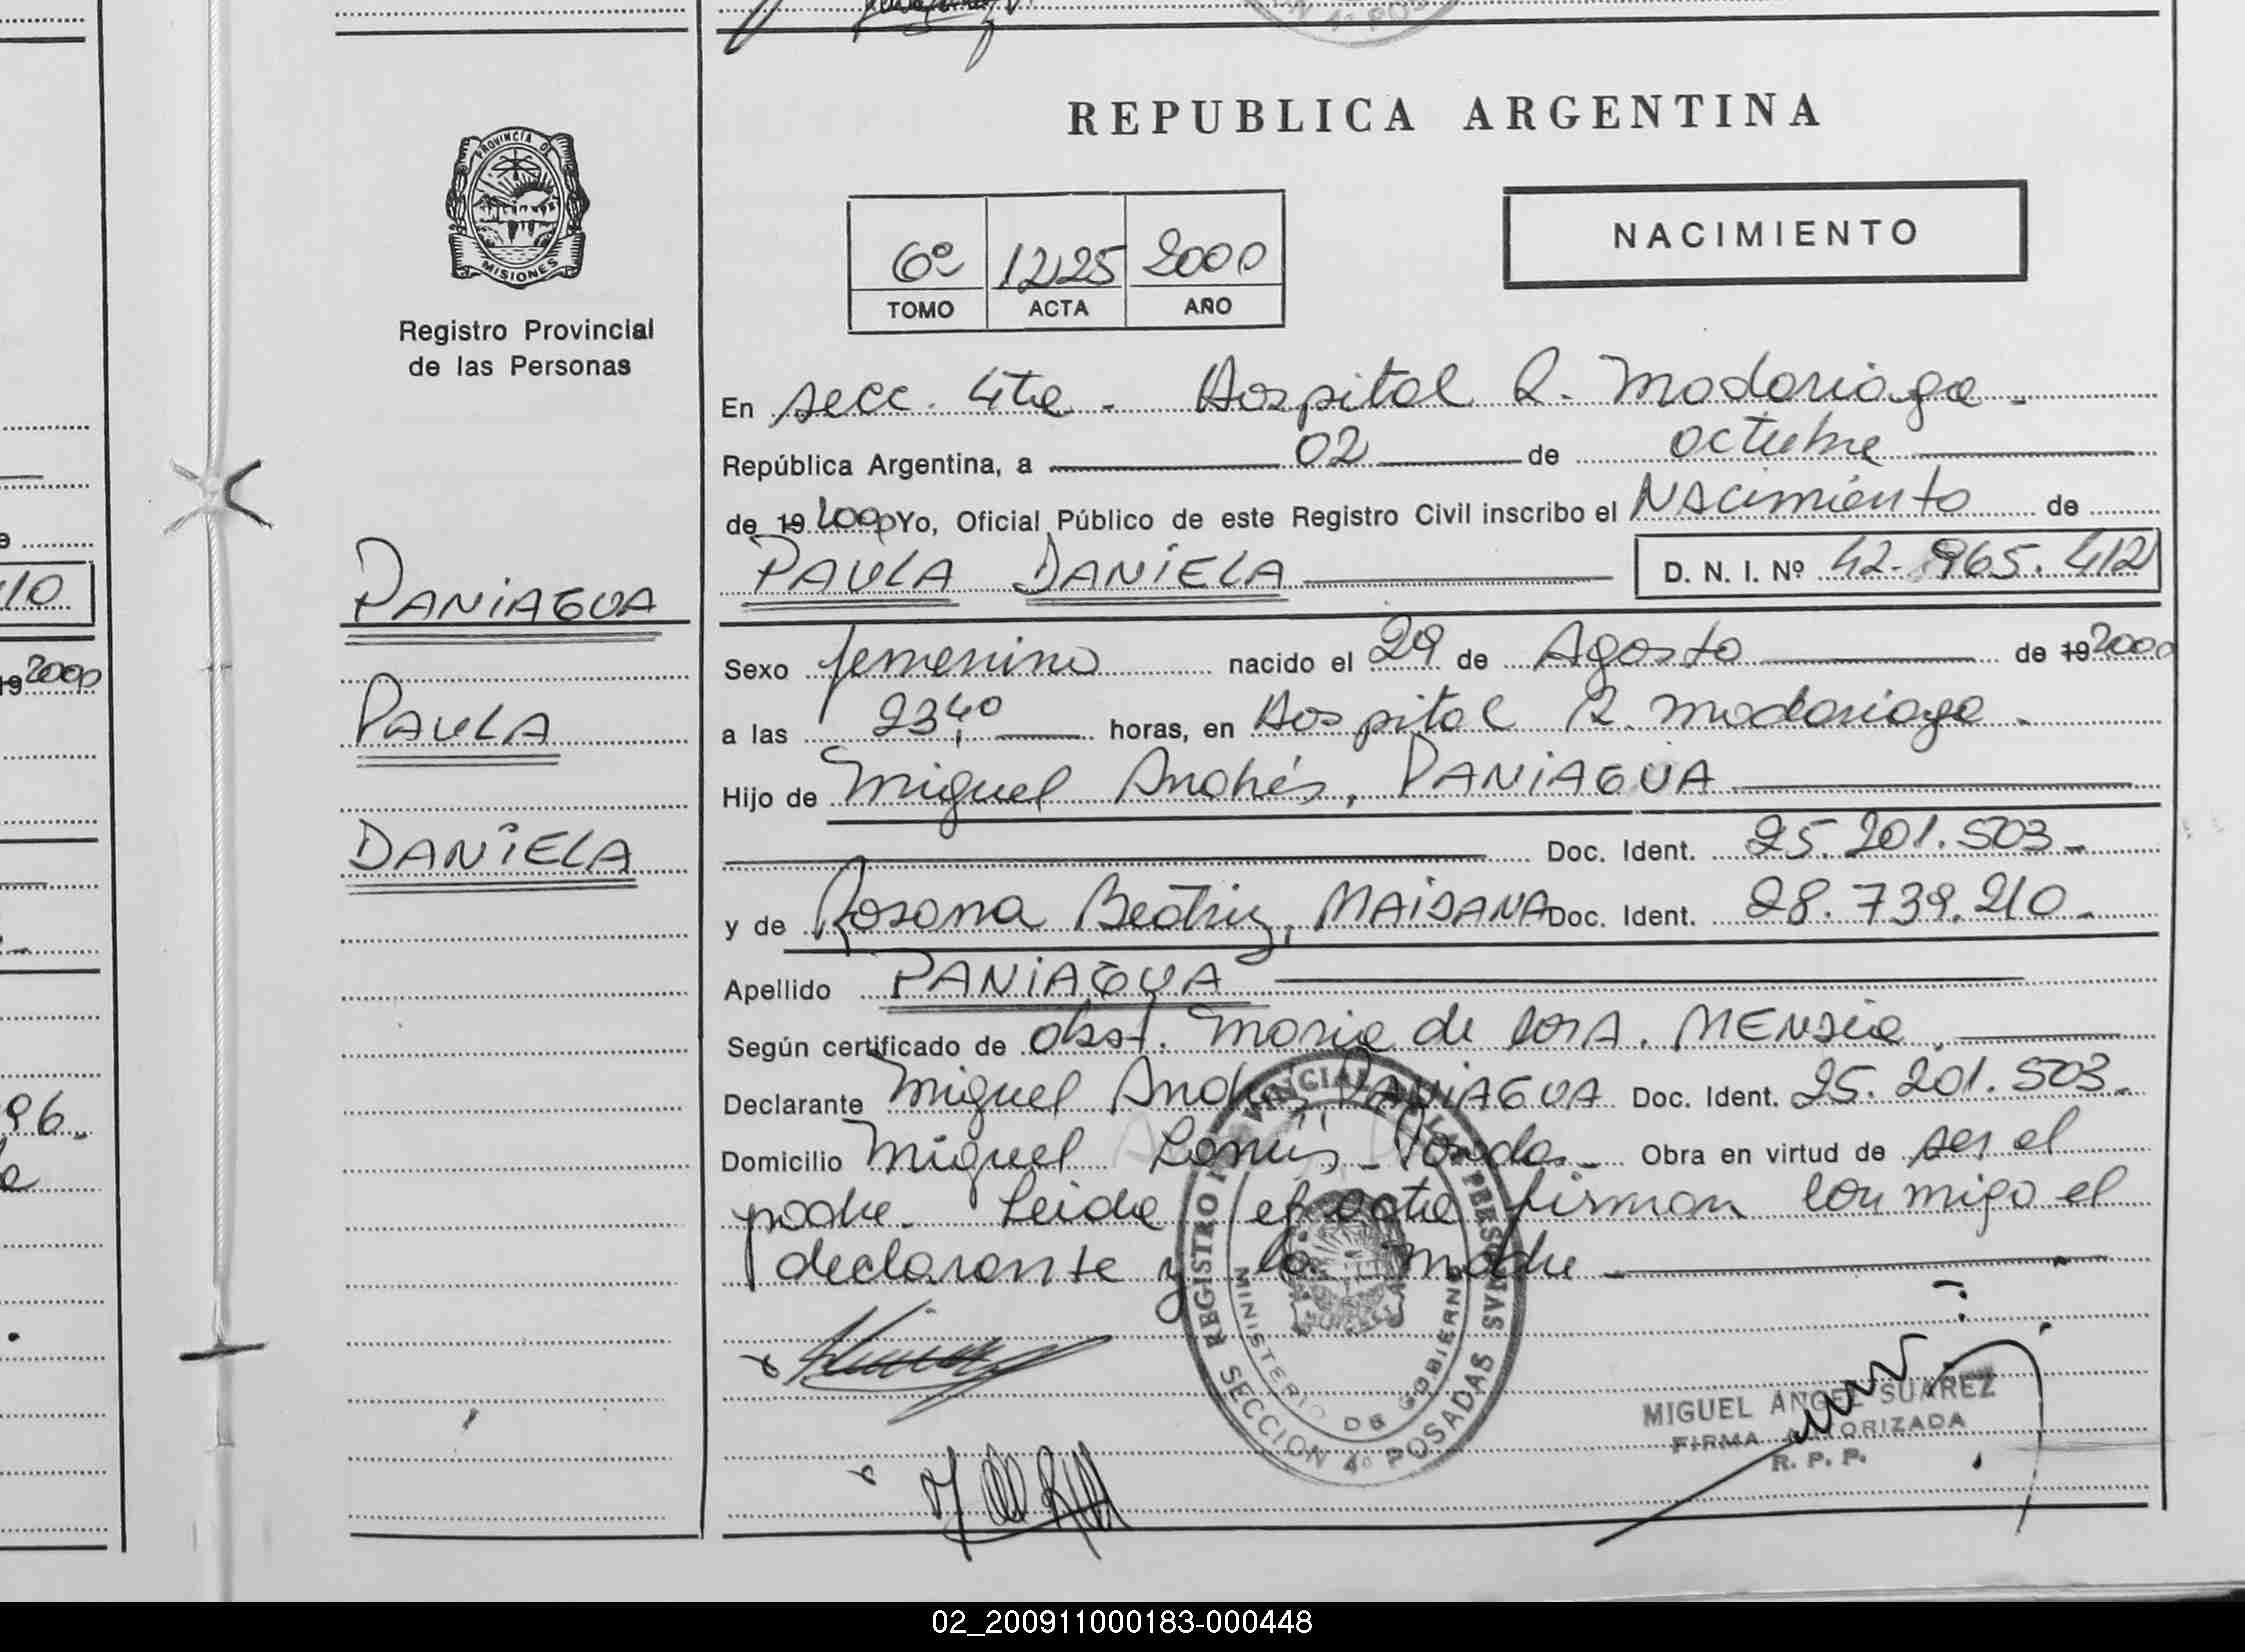 REPUBLICA ARGENTINA
PROVINCIA DE
MISIONES
Registro Provincial
de las Personas
6º 1225 2000
TOMO ACTA AÑO
NACIMIENTO
En secc. 4ta - Hospital R. Madariaga -
República Argentina, a 02 de octubre
de 19 2000 Yo, Oficial Público de este Registro Civil inscribo el Nacimiento de
PAULA DANIELA D. N. I. Nº 42.965.412
PANIAGUA
PAULA
DANIELA
Sexo femenino nacido el 29 de Agosto de 19 2000
a las 23,40 horas, en Hospital R. Madariaga -
Hijo de Miguel Andrés, PANIAGUA
Doc. Ident. 25.201.503-
y de Rosana Beatriz, MAIDANA Doc. Ident. 28.739.210-
Apellido PANIAGUA
Según certificado de obst. Maria de los A. MENDEZ
Declarante Miguel Andrés PANIAGUA Doc. Ident. 25.201.503-
Domicilio Miguel Lanús - Posadas - Obra en virtud de ser el
padre. Leida el acta firman conmigo el
declarante y la madre -
REGISTRO PROVINCIAL DE LAS PERSONAS
MINISTERIO DE GOBIERNO
SECCION 4º POSADAS
MIGUEL ANGEL SUAREZ
FIRMA AUTORIZADA
R. P. P.
10
19 2000
96-
02_200911000183-000448